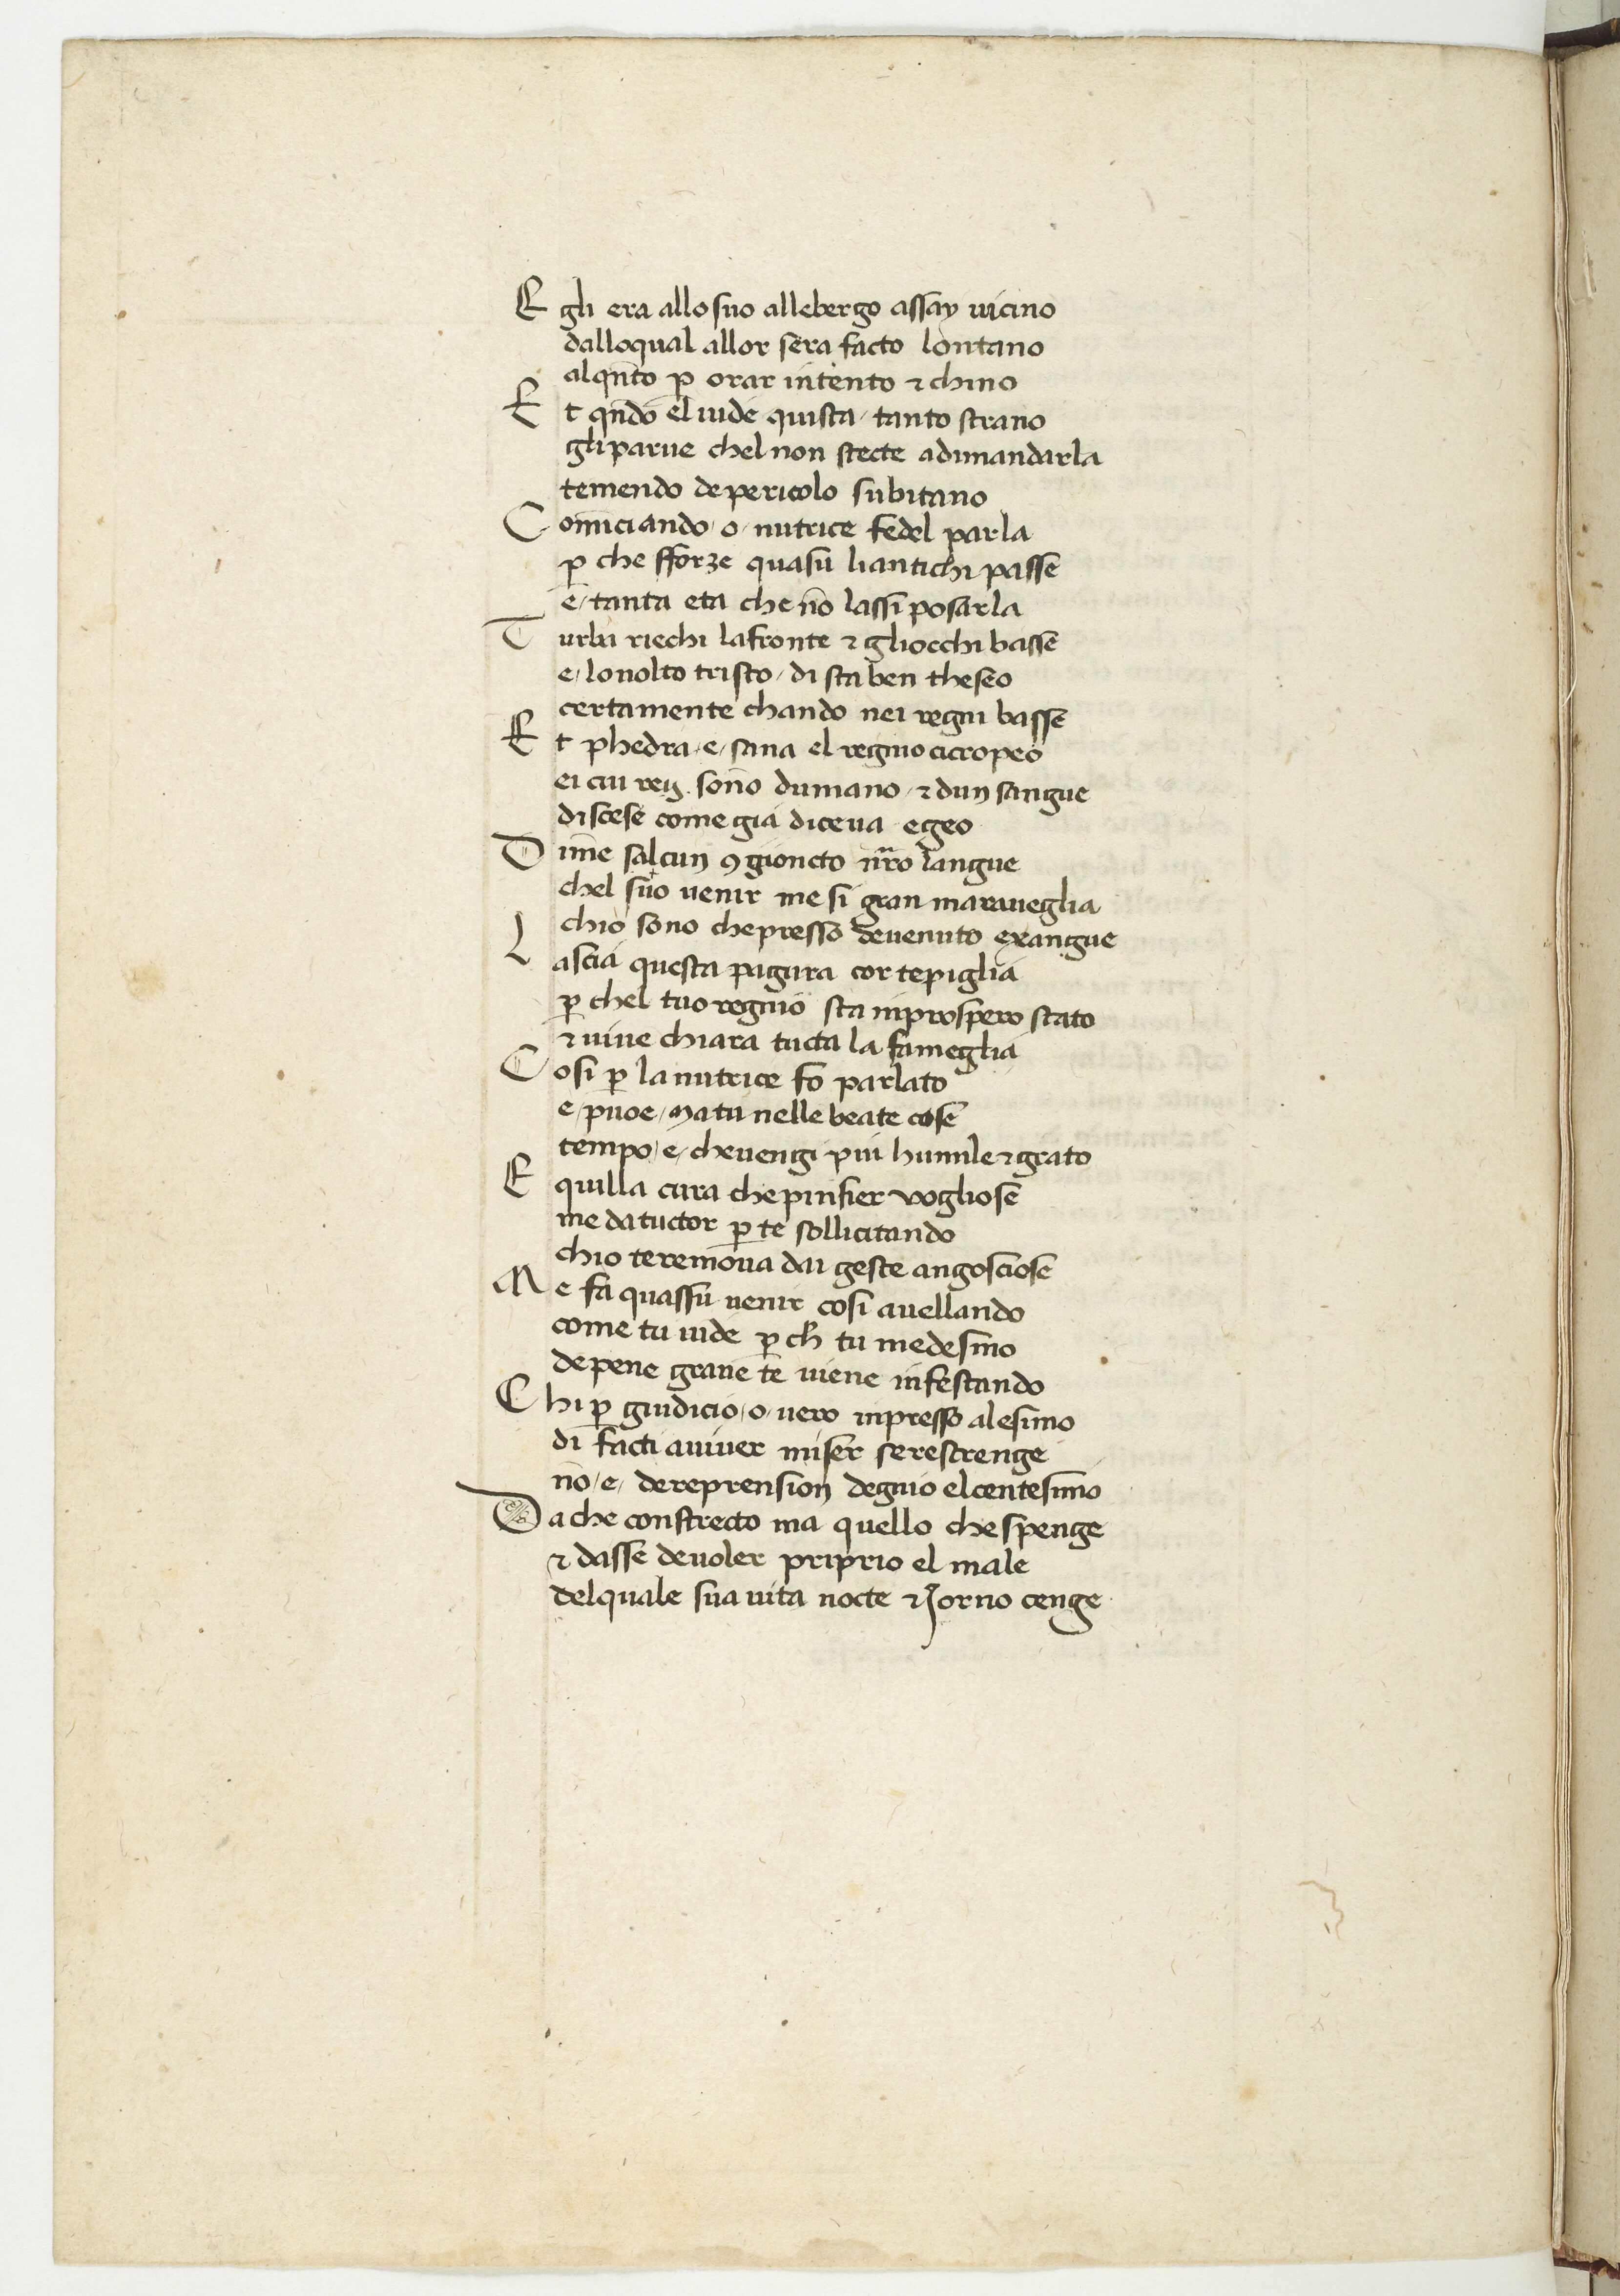 Egli era allo suo allebergo assay vicino
dalloqual allor sera facto lontano
alqn̄to ꝑ orar intento ⁊ chino
Et qn̄do el vide quista tanto strano
gli parue chel non stecte adimandarla
temendo de pericolo subitano
Comīciando / o / nutrice fedel parla
ꝑ che fforze quasu li antichi passe
e / tanta eta che nō lassi posarla
Turbi riechi la fronte ⁊ gli occhi basse
e / lo uolto tristo / di sta ben theseo
certamente chando nei regni basse
Et phedra / e / sana el regnio cicropeo
ei cui reg. sōno dumano / ⁊ dun sangue
discese come gia diceua egeo
Dim̄e salcun ꝯgioncto nr̄o langue
chel suo uenir me si gran maraueglia
chio sono che presso deuenuto exangue
Lascia questa pagura cor te piglia
ꝑ chel tuo regnio sta inprospero stato
⁊ uiue chiara tucta la fameglia
Cosi ꝑ la nutrice fo parlato
e / puoe / Ma tu nelle beate cose
tempo / e / che uengi piu humile ⁊ grato
E quilla cura che pinsier vogliose
me da tuctor ꝑ te sollicitando
chio te remoua dai geste angosciose
Me fa quassu uenir cosi auellando
come tu uide ꝑ ch̄ tu medesmo
de pene graue te uiene infestando
Chi ꝑ giudicio / o / uero inpresso alesimo
di facti a uiuer miser se restrenge
nō / e / de reprension degnio el centesimo
Da che constrecto ma quello che spenge
⁊ dasse de uoler priprio el male
del quale sua uita nocte ⁊ Jorno cenge